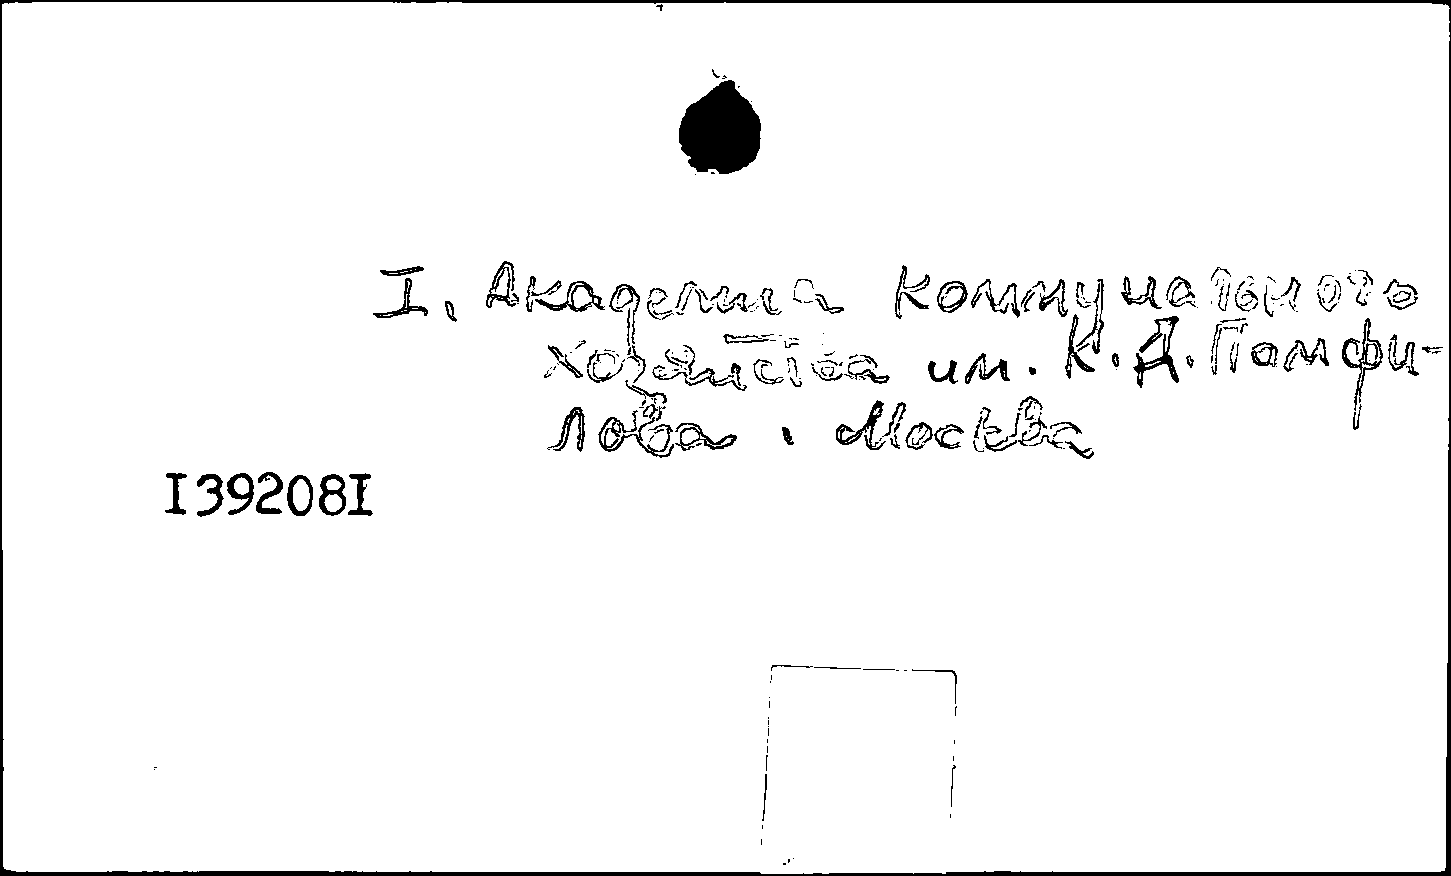 I. Академия коммунального
хозяйства им. К.Д. Памфи-
лова. Москва
I39208I